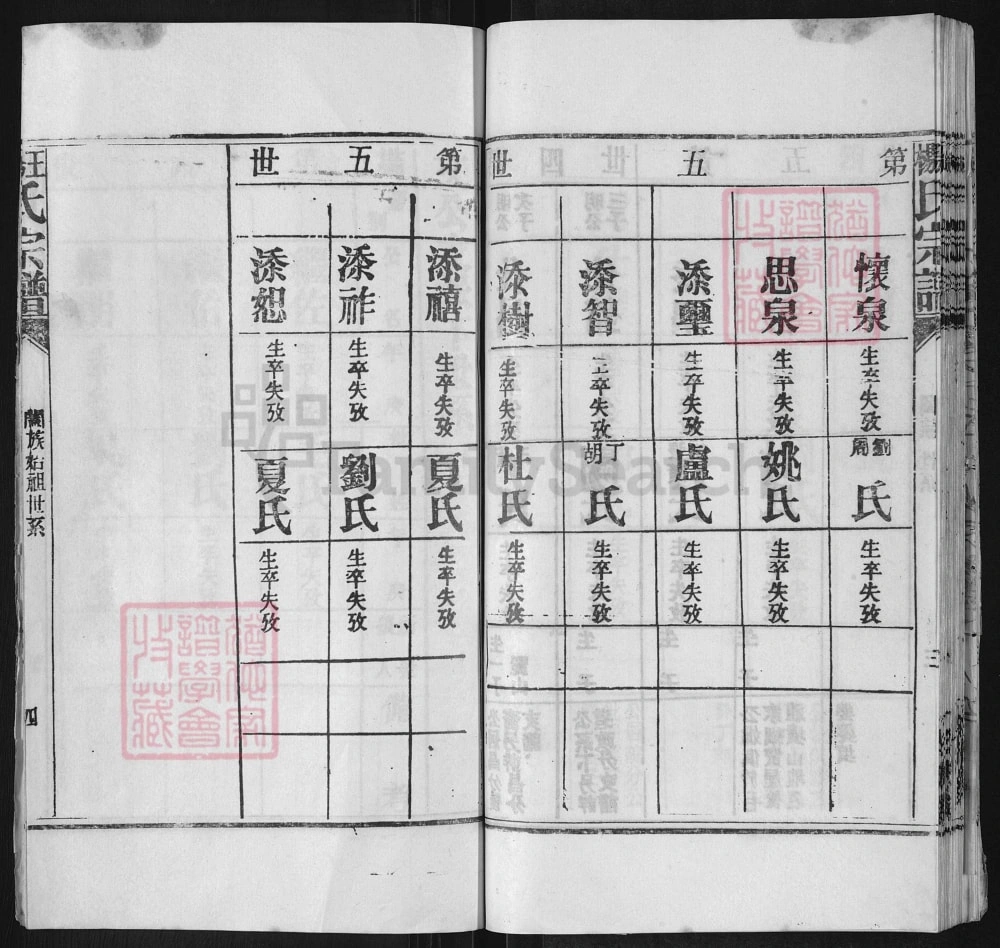 楊氏宗譜
三
第五世
懷泉
生卒失攷
劉周氏
生卒失攷
思泉
生卒失攷
姚氏
生卒失攷
添璽
生卒失攷
盧氏
生卒失攷
添智
生卒失攷
丁胡氏
生卒失攷
添樹
生卒失攷
杜氏
生卒失攷
猶他家
譜學會
收藏
第五世
添禧
生卒失攷
夏氏
生卒失攷
添祚
生卒失攷
劉氏
生卒失攷
添恕
生卒失攷
夏氏
生卒失攷
氏宗譜
闔族始祖世系
四
猶他家
譜學會
收藏
FamilySearch